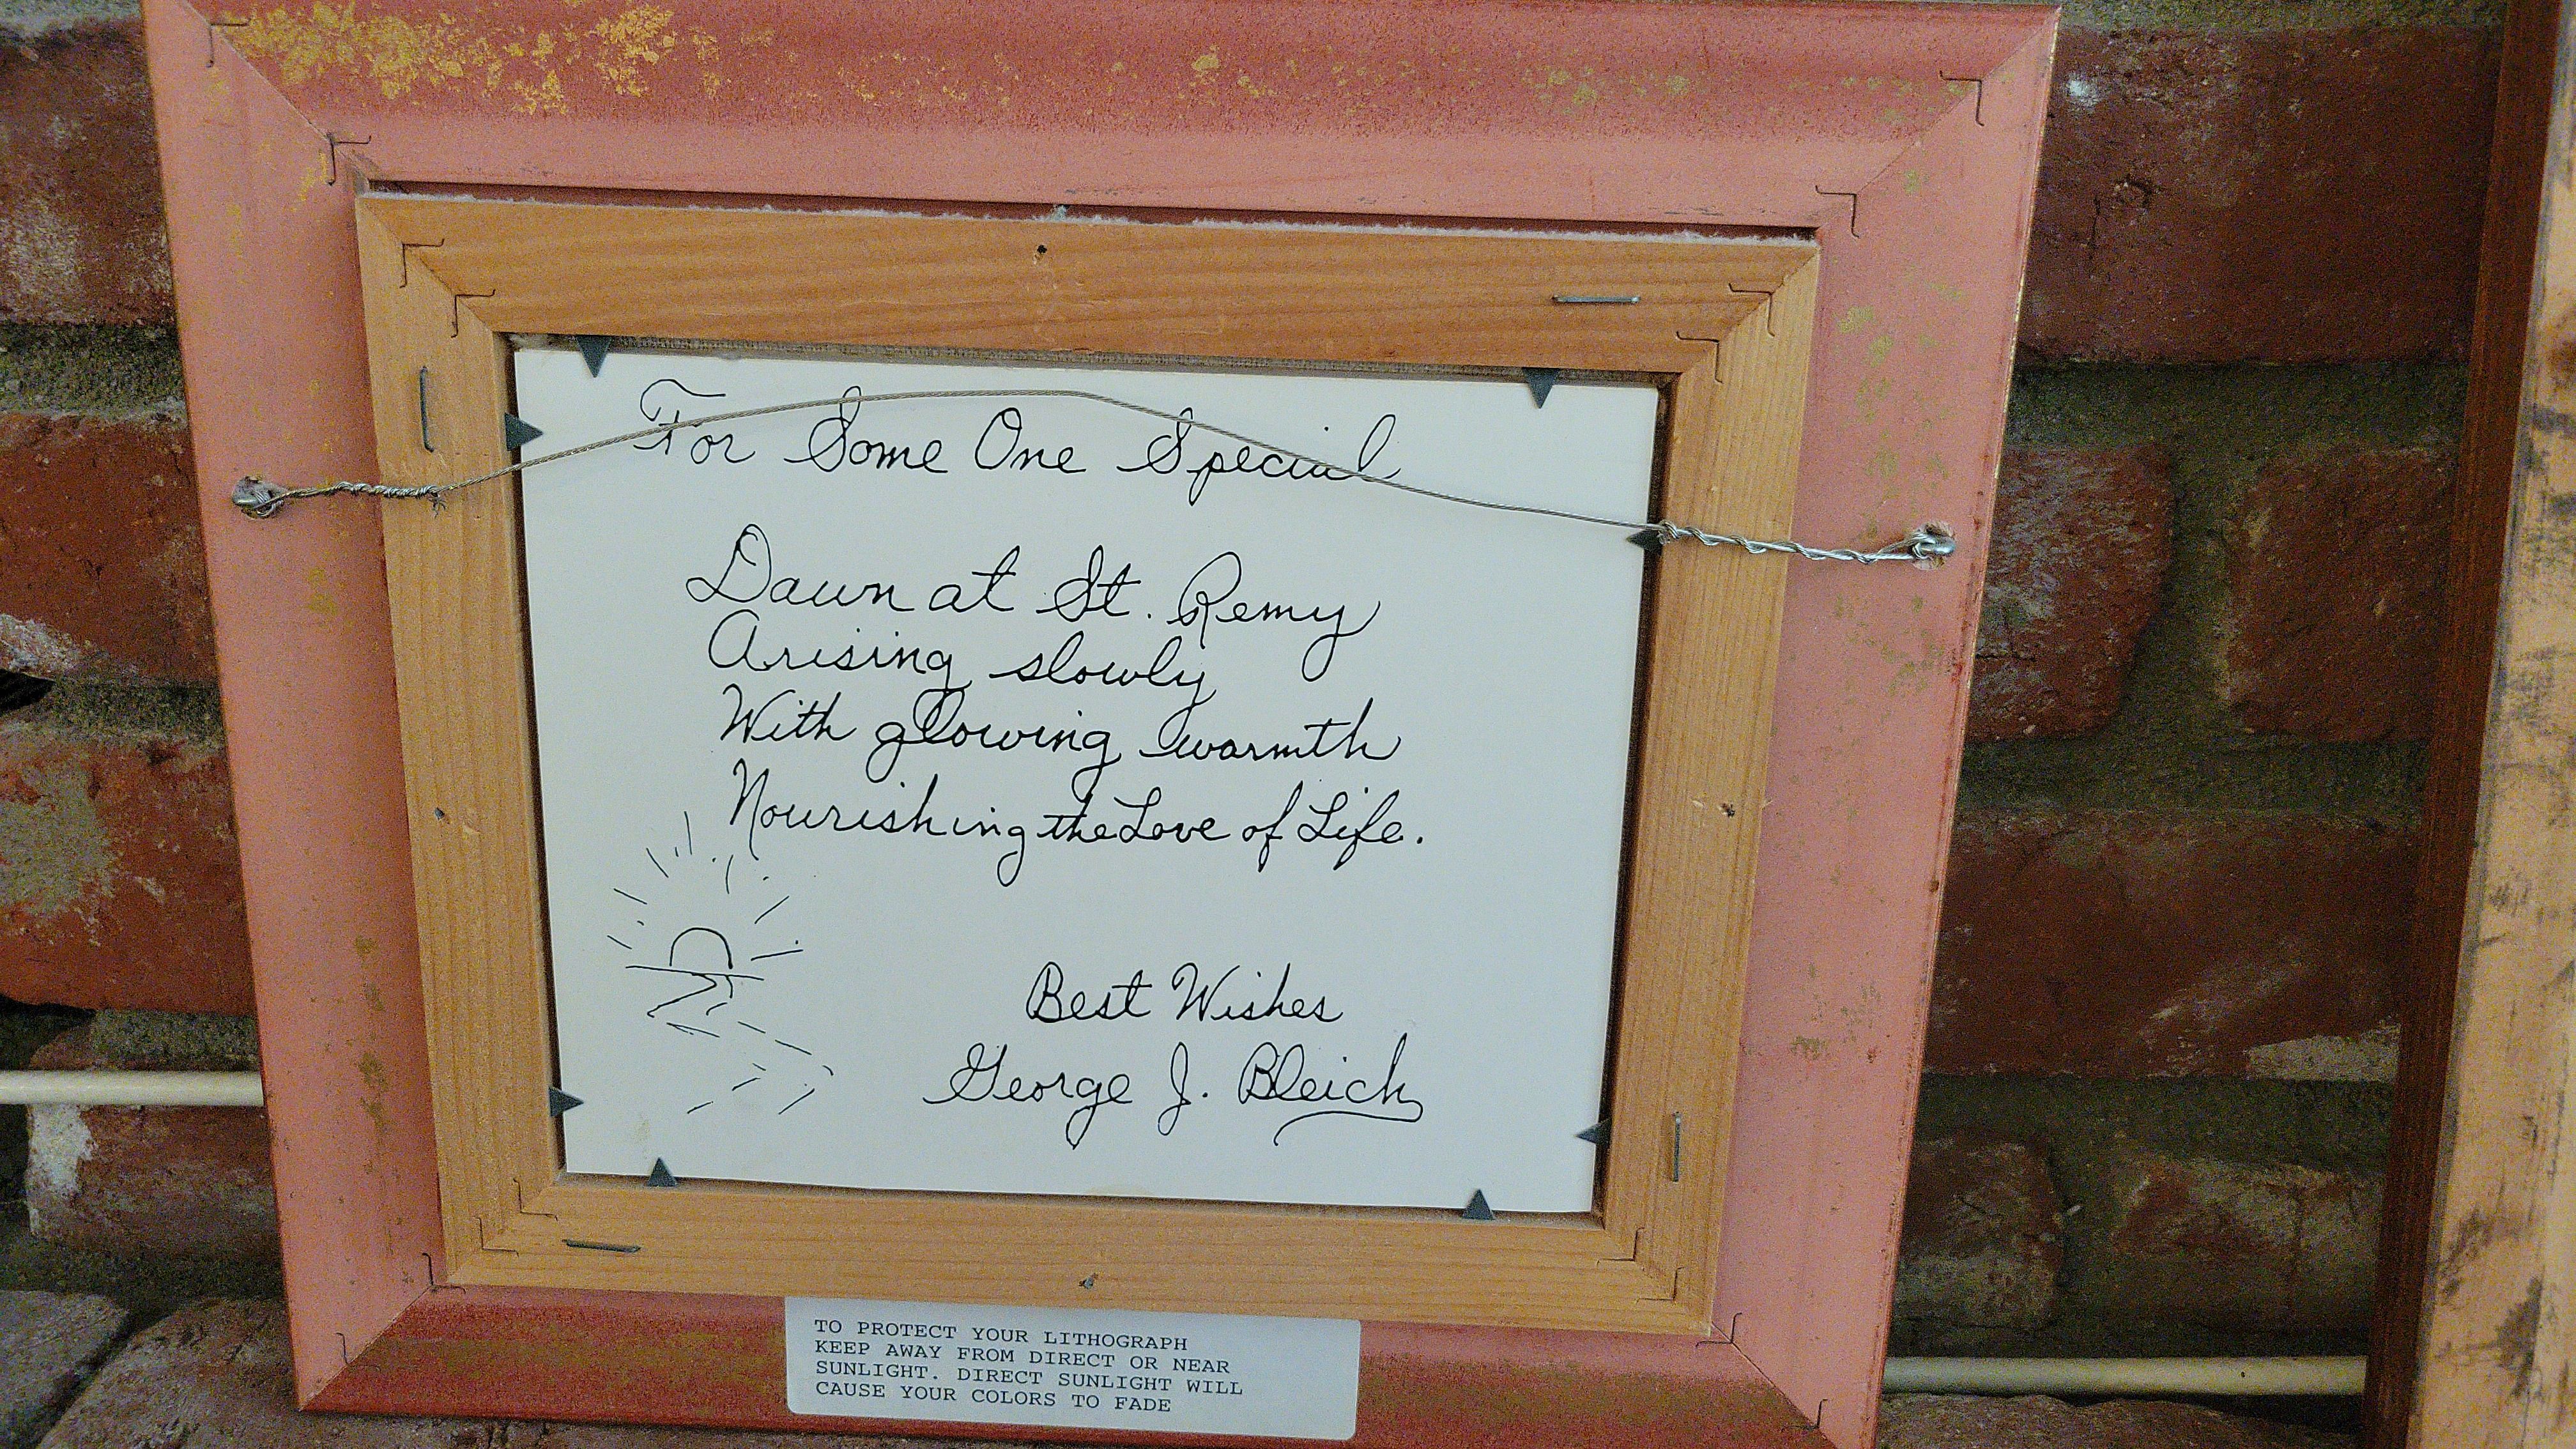 For Some One Special
Dawn at St. Remy
Arising slowly
With glowing warmth
Nourishing the Love of Life.
Best Wishes
George J. Bleich
TO PROTECT YOUR LITHOGRAPH
KEEP AWAY FROM DIRECT OR NEAR
SUNLIGHT. DIRECT SUNLIGHT WILL
CAUSE YOUR COLORS TO FADE